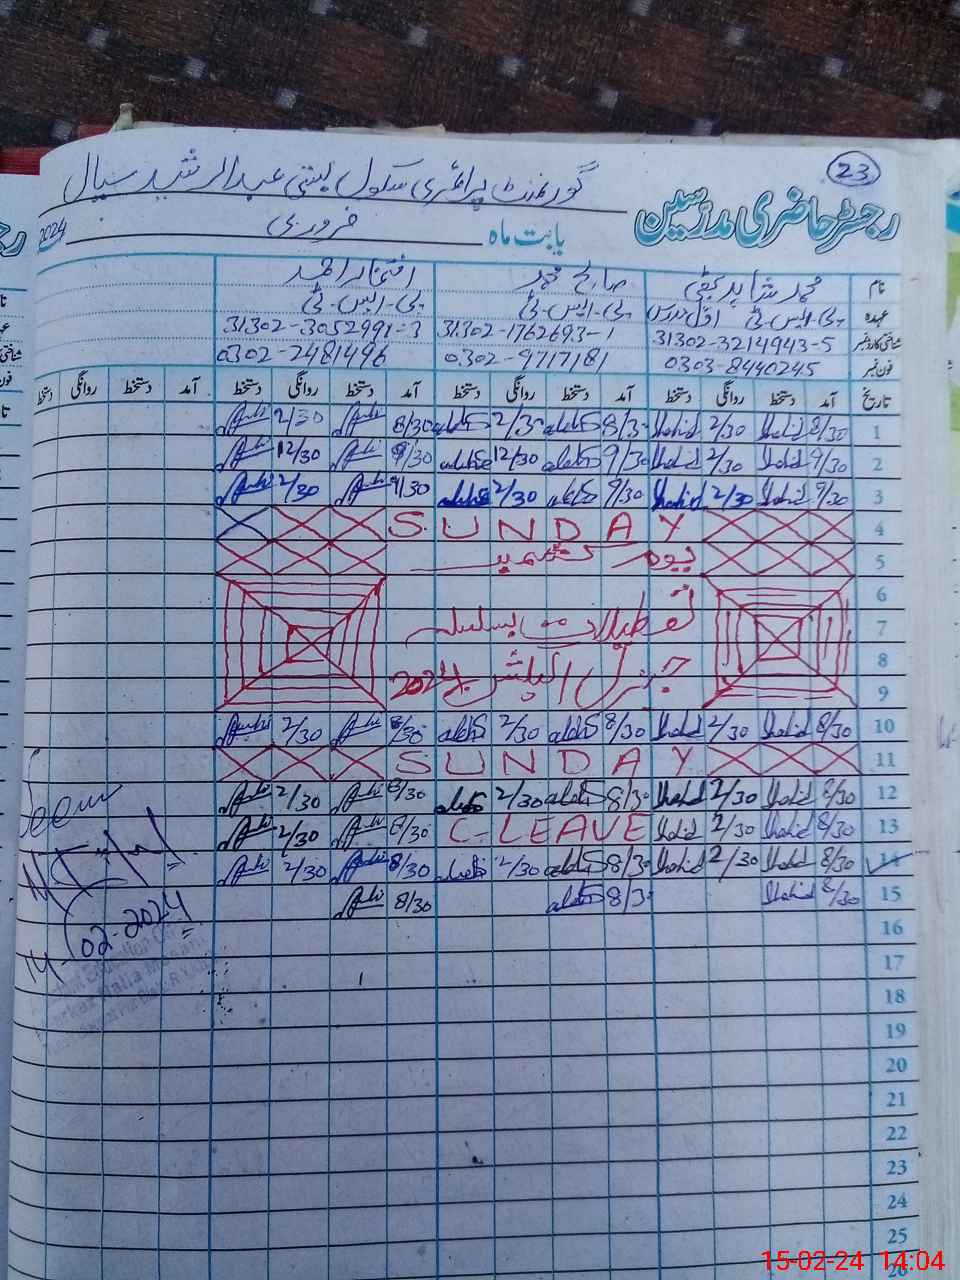 23
رجسٹر حاضری مدرسین
گورنمنٹ پرائمری سکول بستی عبدالرشید سیال
بابت ماہ فروری 2024
نام محمد شاہد صالح محمد افتخار احمد
عہدہ پی۔ایس۔ٹی اول مدرس پی۔ایس۔ٹی پی۔ایس۔ٹی
شناختی کارڈ نمبر 31302-3214943-5 31302-1762693-1 31302-3052991-3
فون نمبر 0303-8440245 0302-9717181 0302-2481496
تاریخ آمد دستخط روانگی دستخط آمد دستخط روانگی دستخط آمد دستخط روانگی دستخط آمد دستخط روانگی دستخط
1 8/30 Shahid 2/30 Shahid 8/30 2/30 8/30 2/30
2 9/30 Shahid 12/30 Shahid 9/30 12/30 9/30 12/30
3 9/30 Shahid 2/30 Shahid 9/30 2/30 9/30 2/30
4 SUNDAY
5 یوم کشمیر
6
7 تعطیلات بسلسلہ
8 جنرل الیکشن 2024
9
10 8/30 Shahid 2/30 Shahid 8/30 2/30 8/30 2/30
11 SUNDAY
12 8/30 Shahid 2/30 Shahid 8/30 2/30 8/30 2/30
13 8/30 Shahid 2/30 Shahid C-LEAVE 8/30 2/30
14 8/30 Shahid 2/30 Shahid 8/30 2/30 8/30 2/30
15 8/30 Shahid 8/30 8/30
Seen
14-02-2024
16
17
18
19
20
21
22
23
24
25
26
15-02-24 14:04